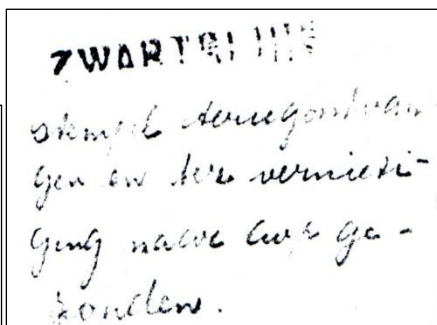 ZWARTSLUIS
stempel terugontvan
gen en ter vernieti-
ging naar
ge-
zonden.